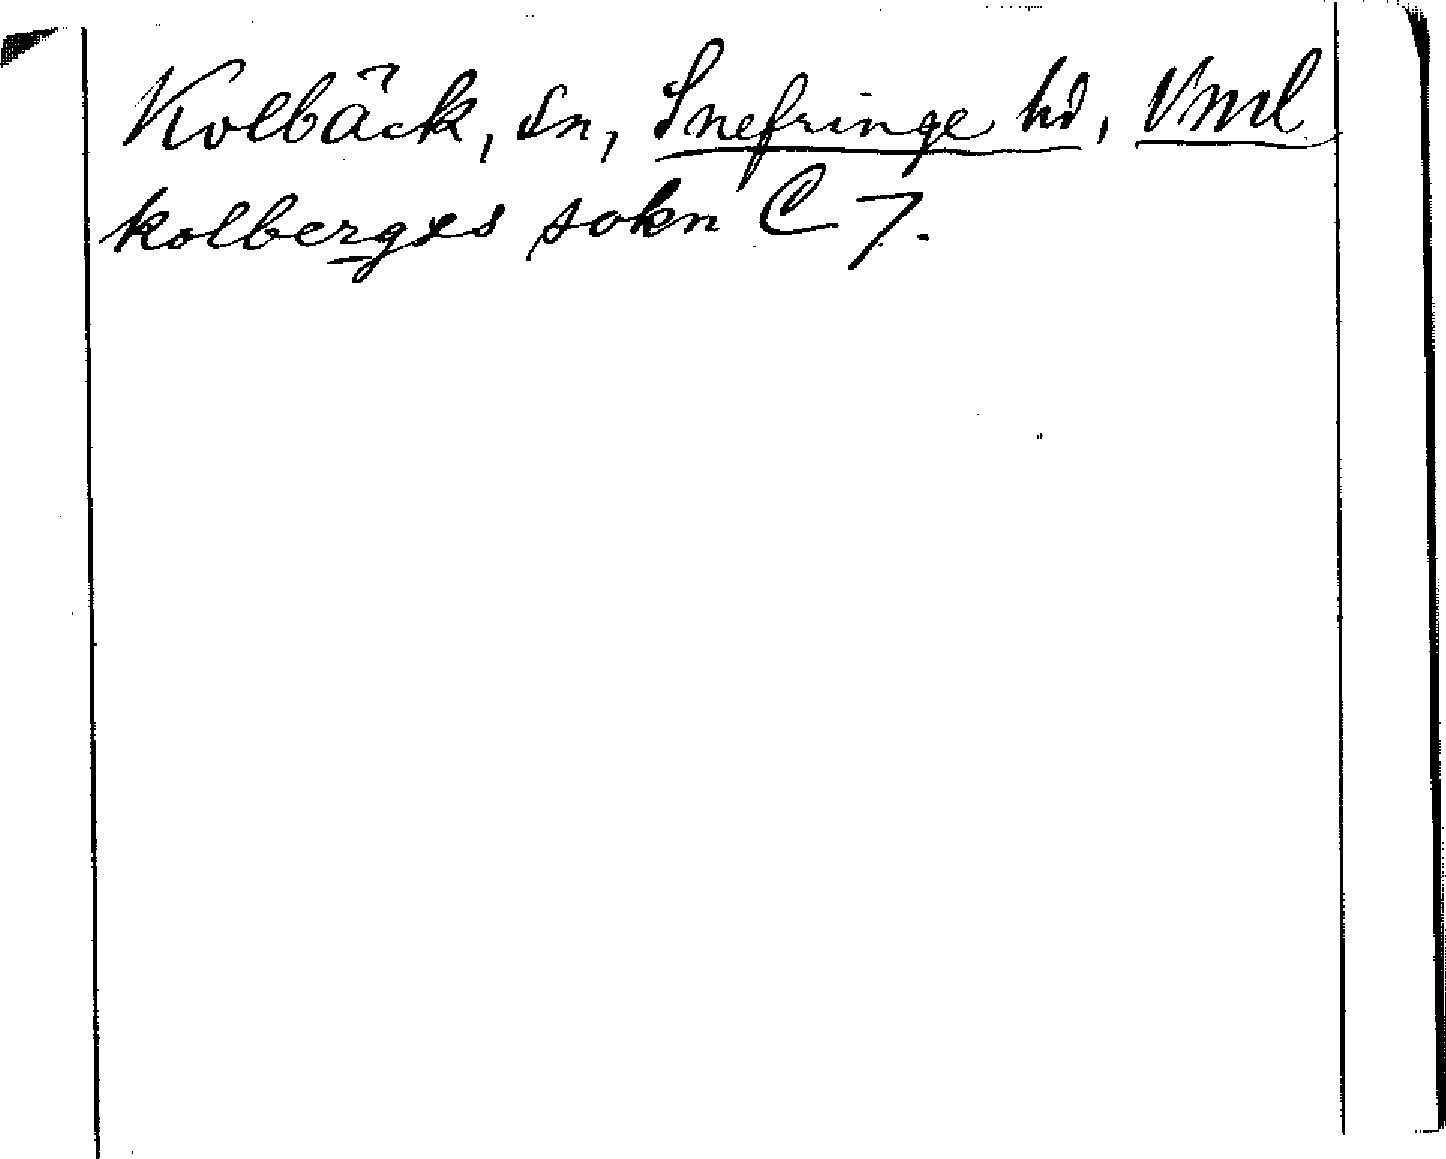 Kolbäck, sn, Snefringe hd, Vml
kolberges sokn C 7.